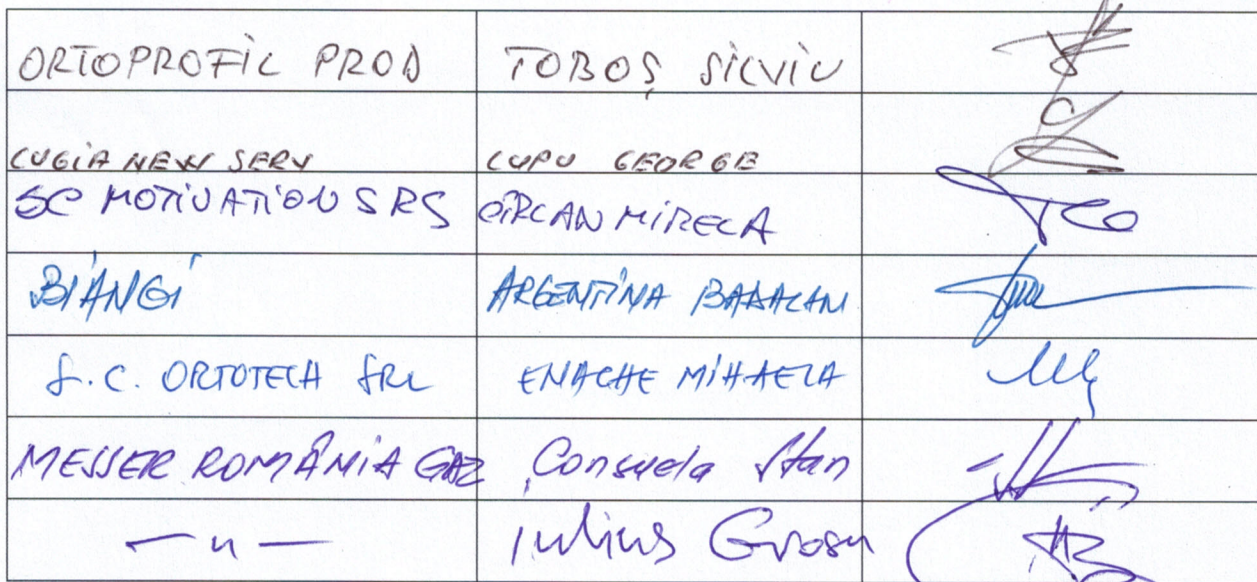 ORTOPROFIL PROD TOBOȘ SILVIU
LUGIA NEW SERV LUPU GEORGE
SC MOTIVATION SRS CÎRLAN MIRELA
BIANGI ARGENTINA BABALAN
S.C. ORTOTECH SRL ENACHE MIHAELA
MESSER ROMÂNIA GAZ Consuela Stan
—"— Iulius Grosu